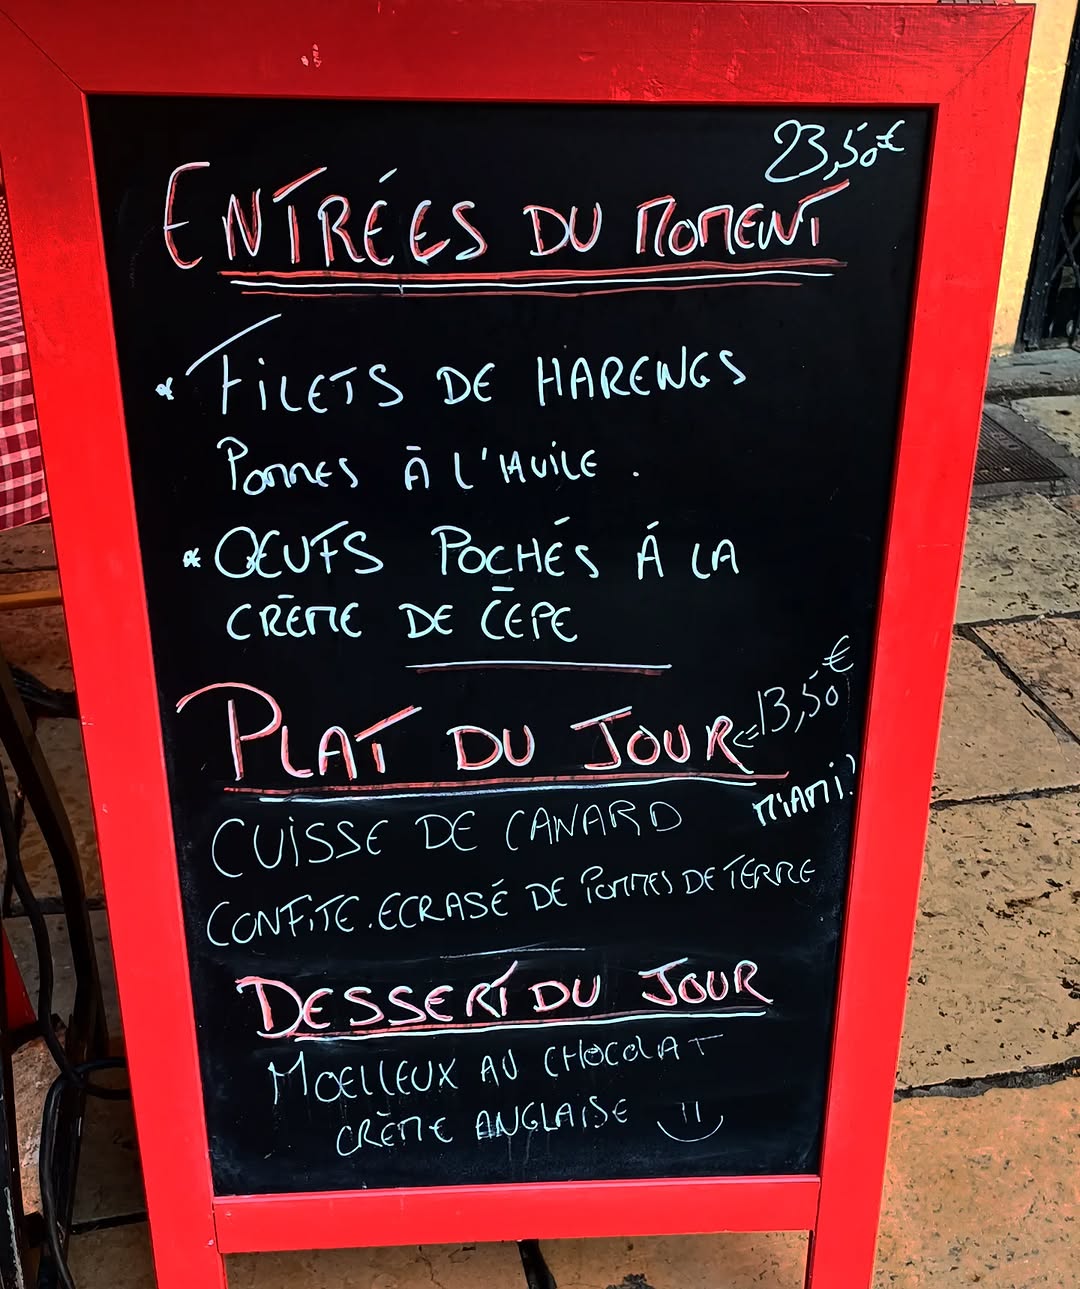 23,50€
ENTRÉES DU MOMENT
* FILETS DE HARENGS
POMMES À L'HUILE.
* ŒUFS POCHÉS Á LA
CRÈME DE CÈPE
PLAT DU JOUR <=13,50€
MIAM!
CUISSE DE CANARD
CONFITE. ECRASÉ DE POMMES DE TERRE
DESSERT DU JOUR
MOELLEUX AU CHOCOLAT
CRÈME ANGLAISE